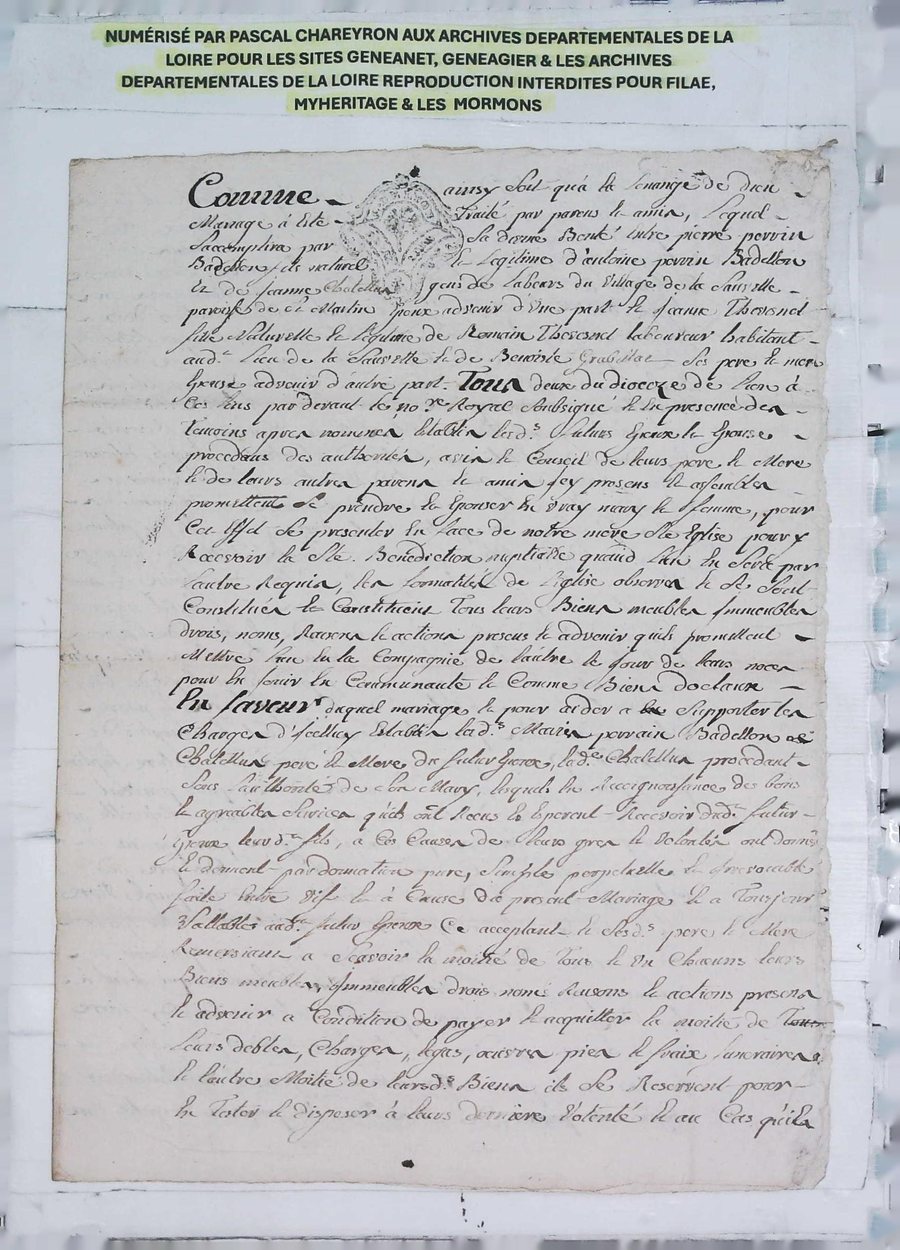 NUMÉRISÉ PAR PASCAL CHAREYRON AUX ARCHIVES DEPARTEMENTALES DE LA
LOIRE POUR LES SITES GENEANET, GENEAGIER & LES ARCHIVES
DEPARTEMENTALES DE LA LOIRE REPRODUCTION INTERDITES POUR FILAE,
MYHERITAGE & LES MORMONS
Comme ainsy soit qu'a la Louange de dieu
Mariage à Eté Traité par parens et amis, Lequel
Saccomplira par Sa divine Bonté Entre pierre perrin
Badellon fils naturel et Legitime d'antoine perrin Badellon
Et de Jeanne Chalellus gens de Labeurs du Village de la Sauvelle
paroisse de St Martin Epoux advenir d'Une part et Jeanne Thevenel
fille Naturelle et Legitime de Romain Thevenel Laboureur habitant
aud. Lieu de la Sauvelle et de Benoiste ses pere et mere
Epouse advenir d'autre part Tous deux du dioceze de Lion à
Ces fins pardevant le no.re Royal Soubsigné et En presence des
Temoins apres nommes Etablis lesd.s futurs Epoux et Epouse
procedans des authorités, avis et Conseil de leurs pere et Mere
et de leurs autres parens et amis Icy presens et assembles
promettent Se prendre et Epouser En Vray mary et femme, pour
Cet Effet Se presenter En face de notre mere Ste Eglise pour y
Recevoir la Ste Benediction nuptialle quand L'un En Sera par
L'autre Requis, les formalités de L'Eglise observes et Se Sont
Constitués et Constituent Tous leurs Biens meubles Immeubles
drois, noms, Raisons et actions presens et advenir quils promettent
Mettre L'un En la Compagnie de L'autre le jour de leurs noces
pour En Jouir En Communauté et Comme Biens dotaux
En faveur duquel mariage et pour aider a Supporter les
Charges d'Icelluy Etablis lesd.s Maries perrin Badellon et
Chalellus pere et Mere du futur Epoux, lad.e Chalellus procedant
Sous L'authorité de Son Mary, lesquels En Recognoissance des bons
et agreables Services qu'ils ont Recus et Esperent Recevoir dud. futur
Epoux leurd. fils, a Ces Causes de leurs gres et Volontés ont donné
et donnent par donnation pure, Simple perpetuelle et Irrevocable
faite Entre Vif et à Cause de present Mariage et a Tousjours
Vallable aud. futur Epoux Ce acceptant et Sesd.s pere et Mere
Remersiant a Scavoir la moitié de Tous et Un Chacuns leurs
Biens meubles, Immeubles drois noms Raisons et actions presens
et advenir a Condition de payer et acquitter la moitié de
leurs debtes, Charges, legas, œuvres pies et fraix funeraires
et L'autre Moitié de leursd.s Biens ils Se Reservent pour
En Tester et disposer à leurs derniere Volonté et au Cas quils